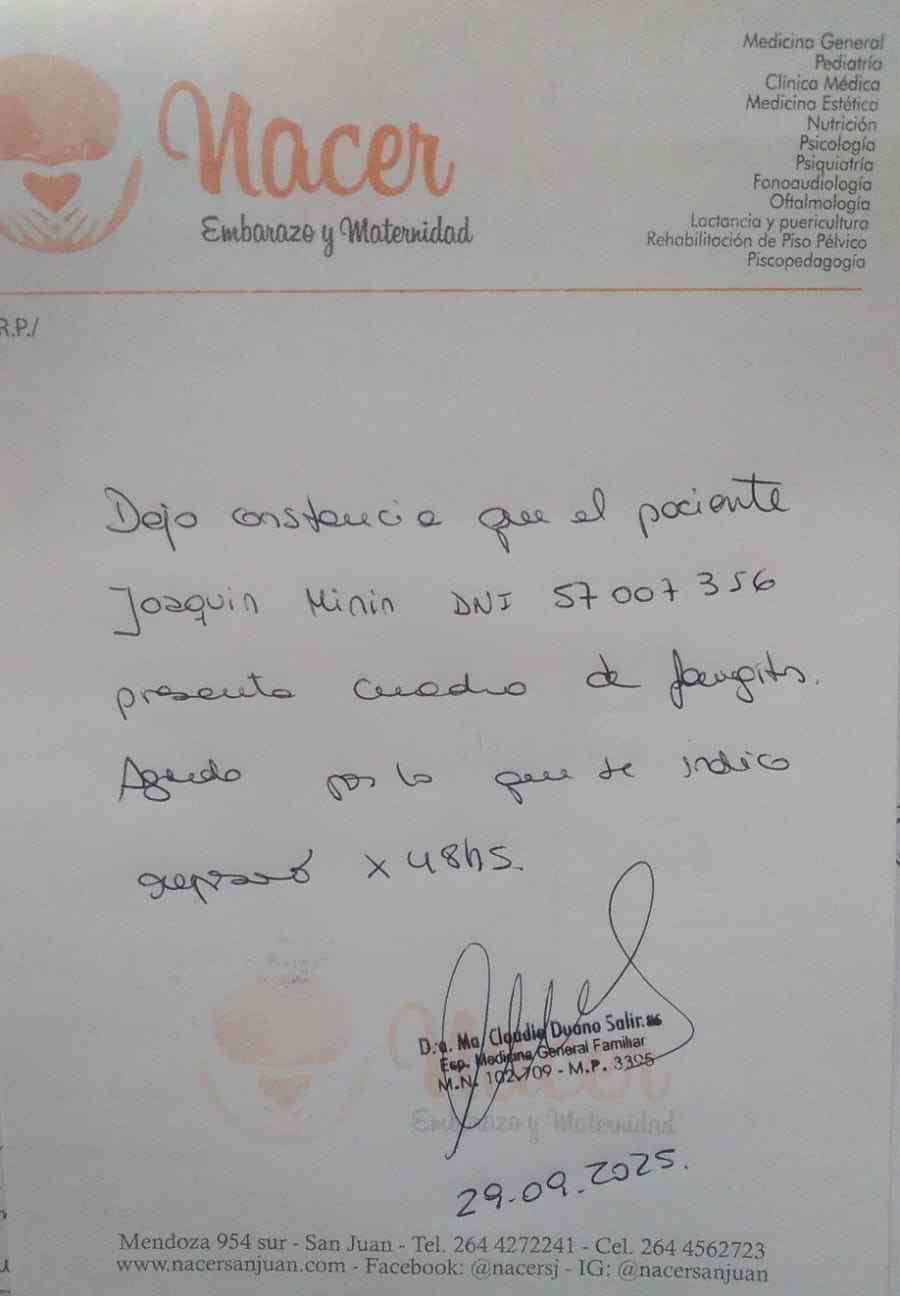 Nacer
Embarazo y Maternidad
Medicina General
Pediatría
Clínica Médica
Medicina Estética
Nutrición
Psicología
Psiquiatría
Fonoaudiología
Oftalmología
Lactancia y puericultura
Rehabilitación de Piso Pélvico
Piscopedagogía
R.P./
Dejo constancia que el paciente
Joaquin Minin DNI 57007356
presenta cuadro de faringitis.
Aguda por lo que se indica
reposo x 48hs.
Nacer
Embarazo y Maternidad
D.a. Ma. Claudia Duano
Esp. Medicina General Familiar
M.N. 102.709 - M.P. 3395
29.09.2025.
Mendoza 954 sur - San Juan - Tel. 264 4272241 - Cel. 264 4562723
www.nacersanjuan.com - Facebook: @nacersj - IG: @nacersanjuan